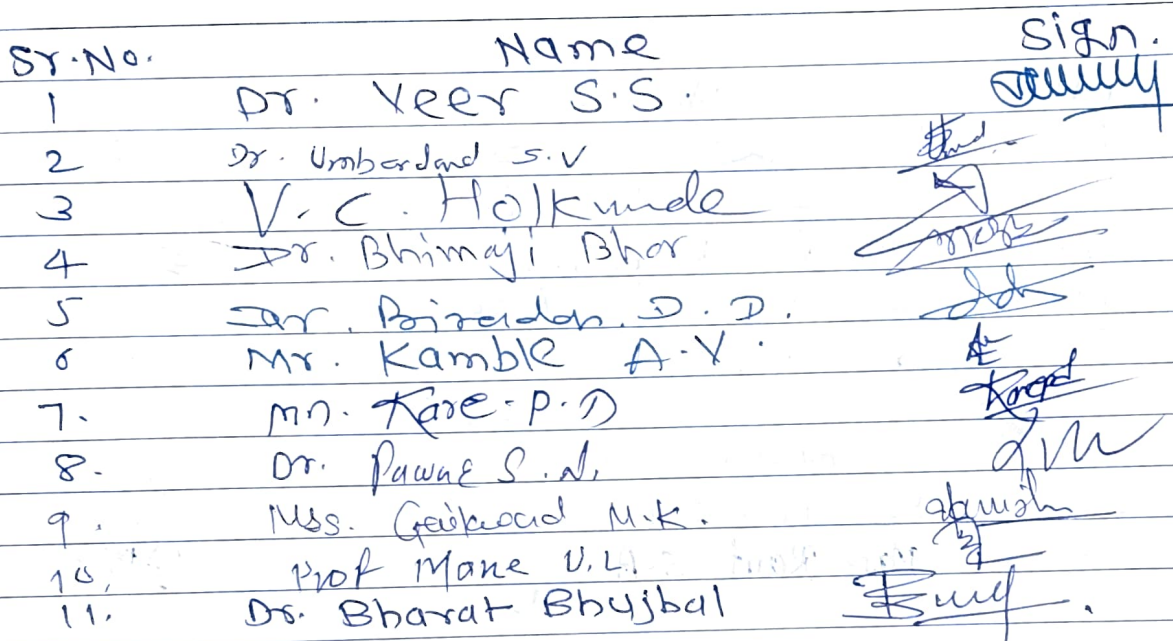 Sr.No. Name Sign.
1 Dr. Veer S.S.
2 Dr. Umbardand S.V
3 V.C. Holkunde
4 Dr. Bhimaji Bhor
5 Dr. Biradar. D.D.
6 Mr. Kamble A.V.
7. Mr. Kare-P.D
8. Dr. Pawae S.N.
9. Miss. Gaikwad M.K.
10. Prof Mane V.L.
11. Dr. Bharat Bhujbal